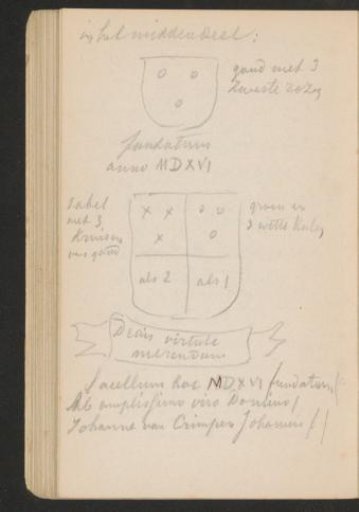 in het middendeel:
goud met 3
zwarte
fundatum
anno MDXVI
sabel
met 3
kruisen
van goud
groen en
3 witte
als 2
als 1
virtute
merendum
Sacellum hoc MDXVI fundatum
Ab amplissimo viro Domino
Johanne van Crimpen